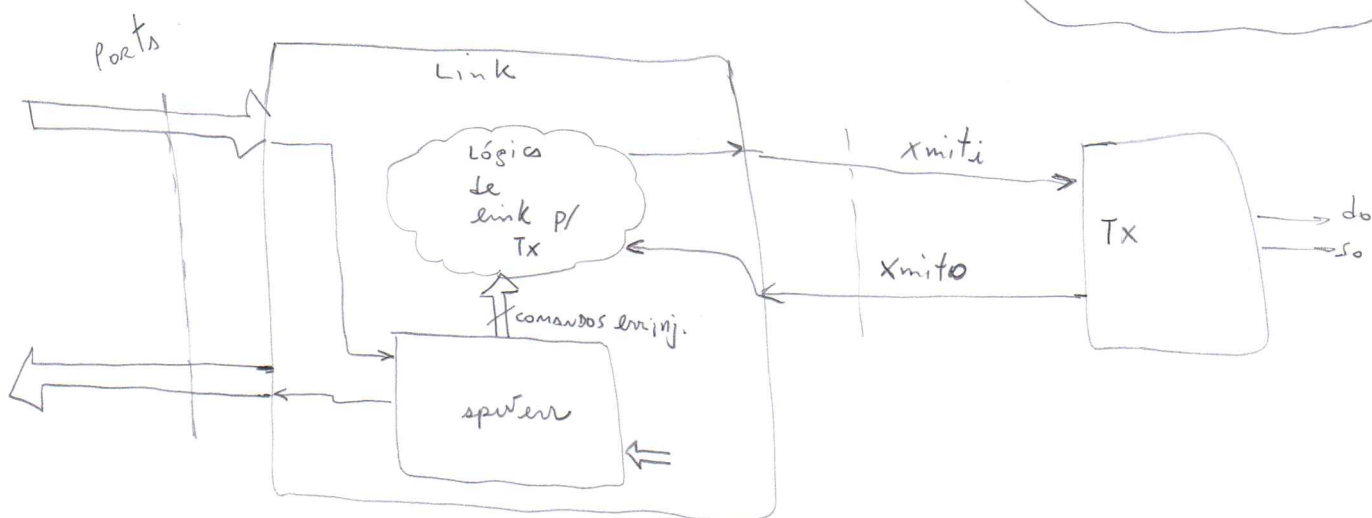 Ports
Link
Lógica
de
link p/
Tx
xmiti
Tx
do
so
xmito
COMANDOS errinj.
spwerr